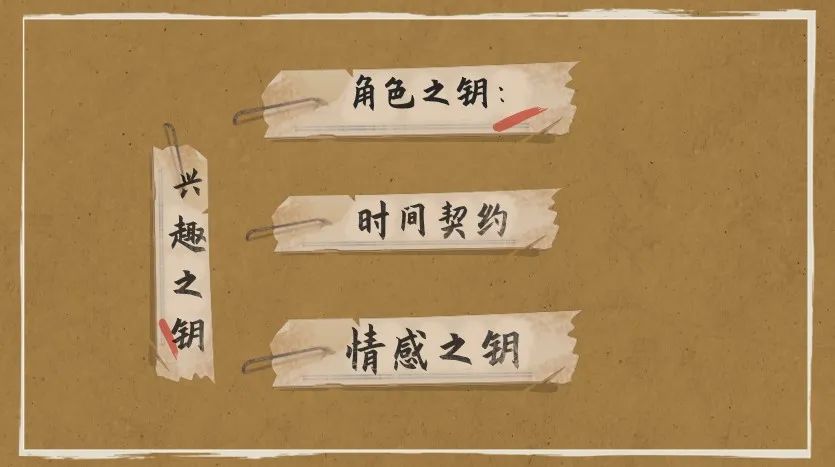 角色之钥:
兴趣之钥
时间契约
情感之钥